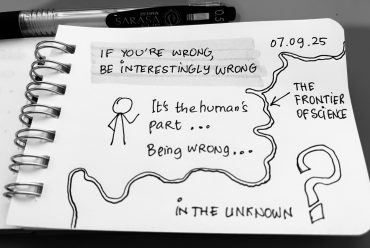 SARASA
0.5
07.09.25
IF YOU'RE WRONG,
BE INTERESTINGLY WRONG
THE
FRONTIER
OF SCIENCE
It's the human's
part ...
Being wrong...
IN THE UNKNOWN
?